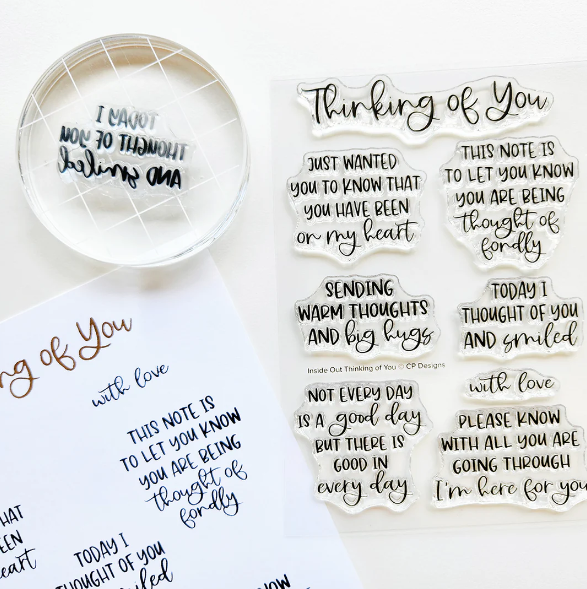 TODAY I
THOUGHT OF YOU
AND smiled
Thinking of You
JUST WANTED
YOU TO KNOW THAT
YOU HAVE BEEN
on my heart
THIS NOTE IS
TO LET YOU KNOW
YOU ARE BEING
thought of
fondly
SENDING
WARM THOUGHTS
AND big hugs
TODAY I
THOUGHT OF YOU
AND smiled
Inside Out Thinking of You © CP Designs
with love
NOT EVERY DAY
IS A good day
BUT THERE IS
GOOD IN
every day
PLEASE KNOW
WITH ALL YOU ARE
GOING THROUGH
I'm here for you
ng of You
with love
THIS NOTE IS
TO LET YOU KNOW
YOU ARE BEING
thought of
fondly
HAT
EEN
eart
TODAY I
THOUGHT OF YOU
iled
NOW